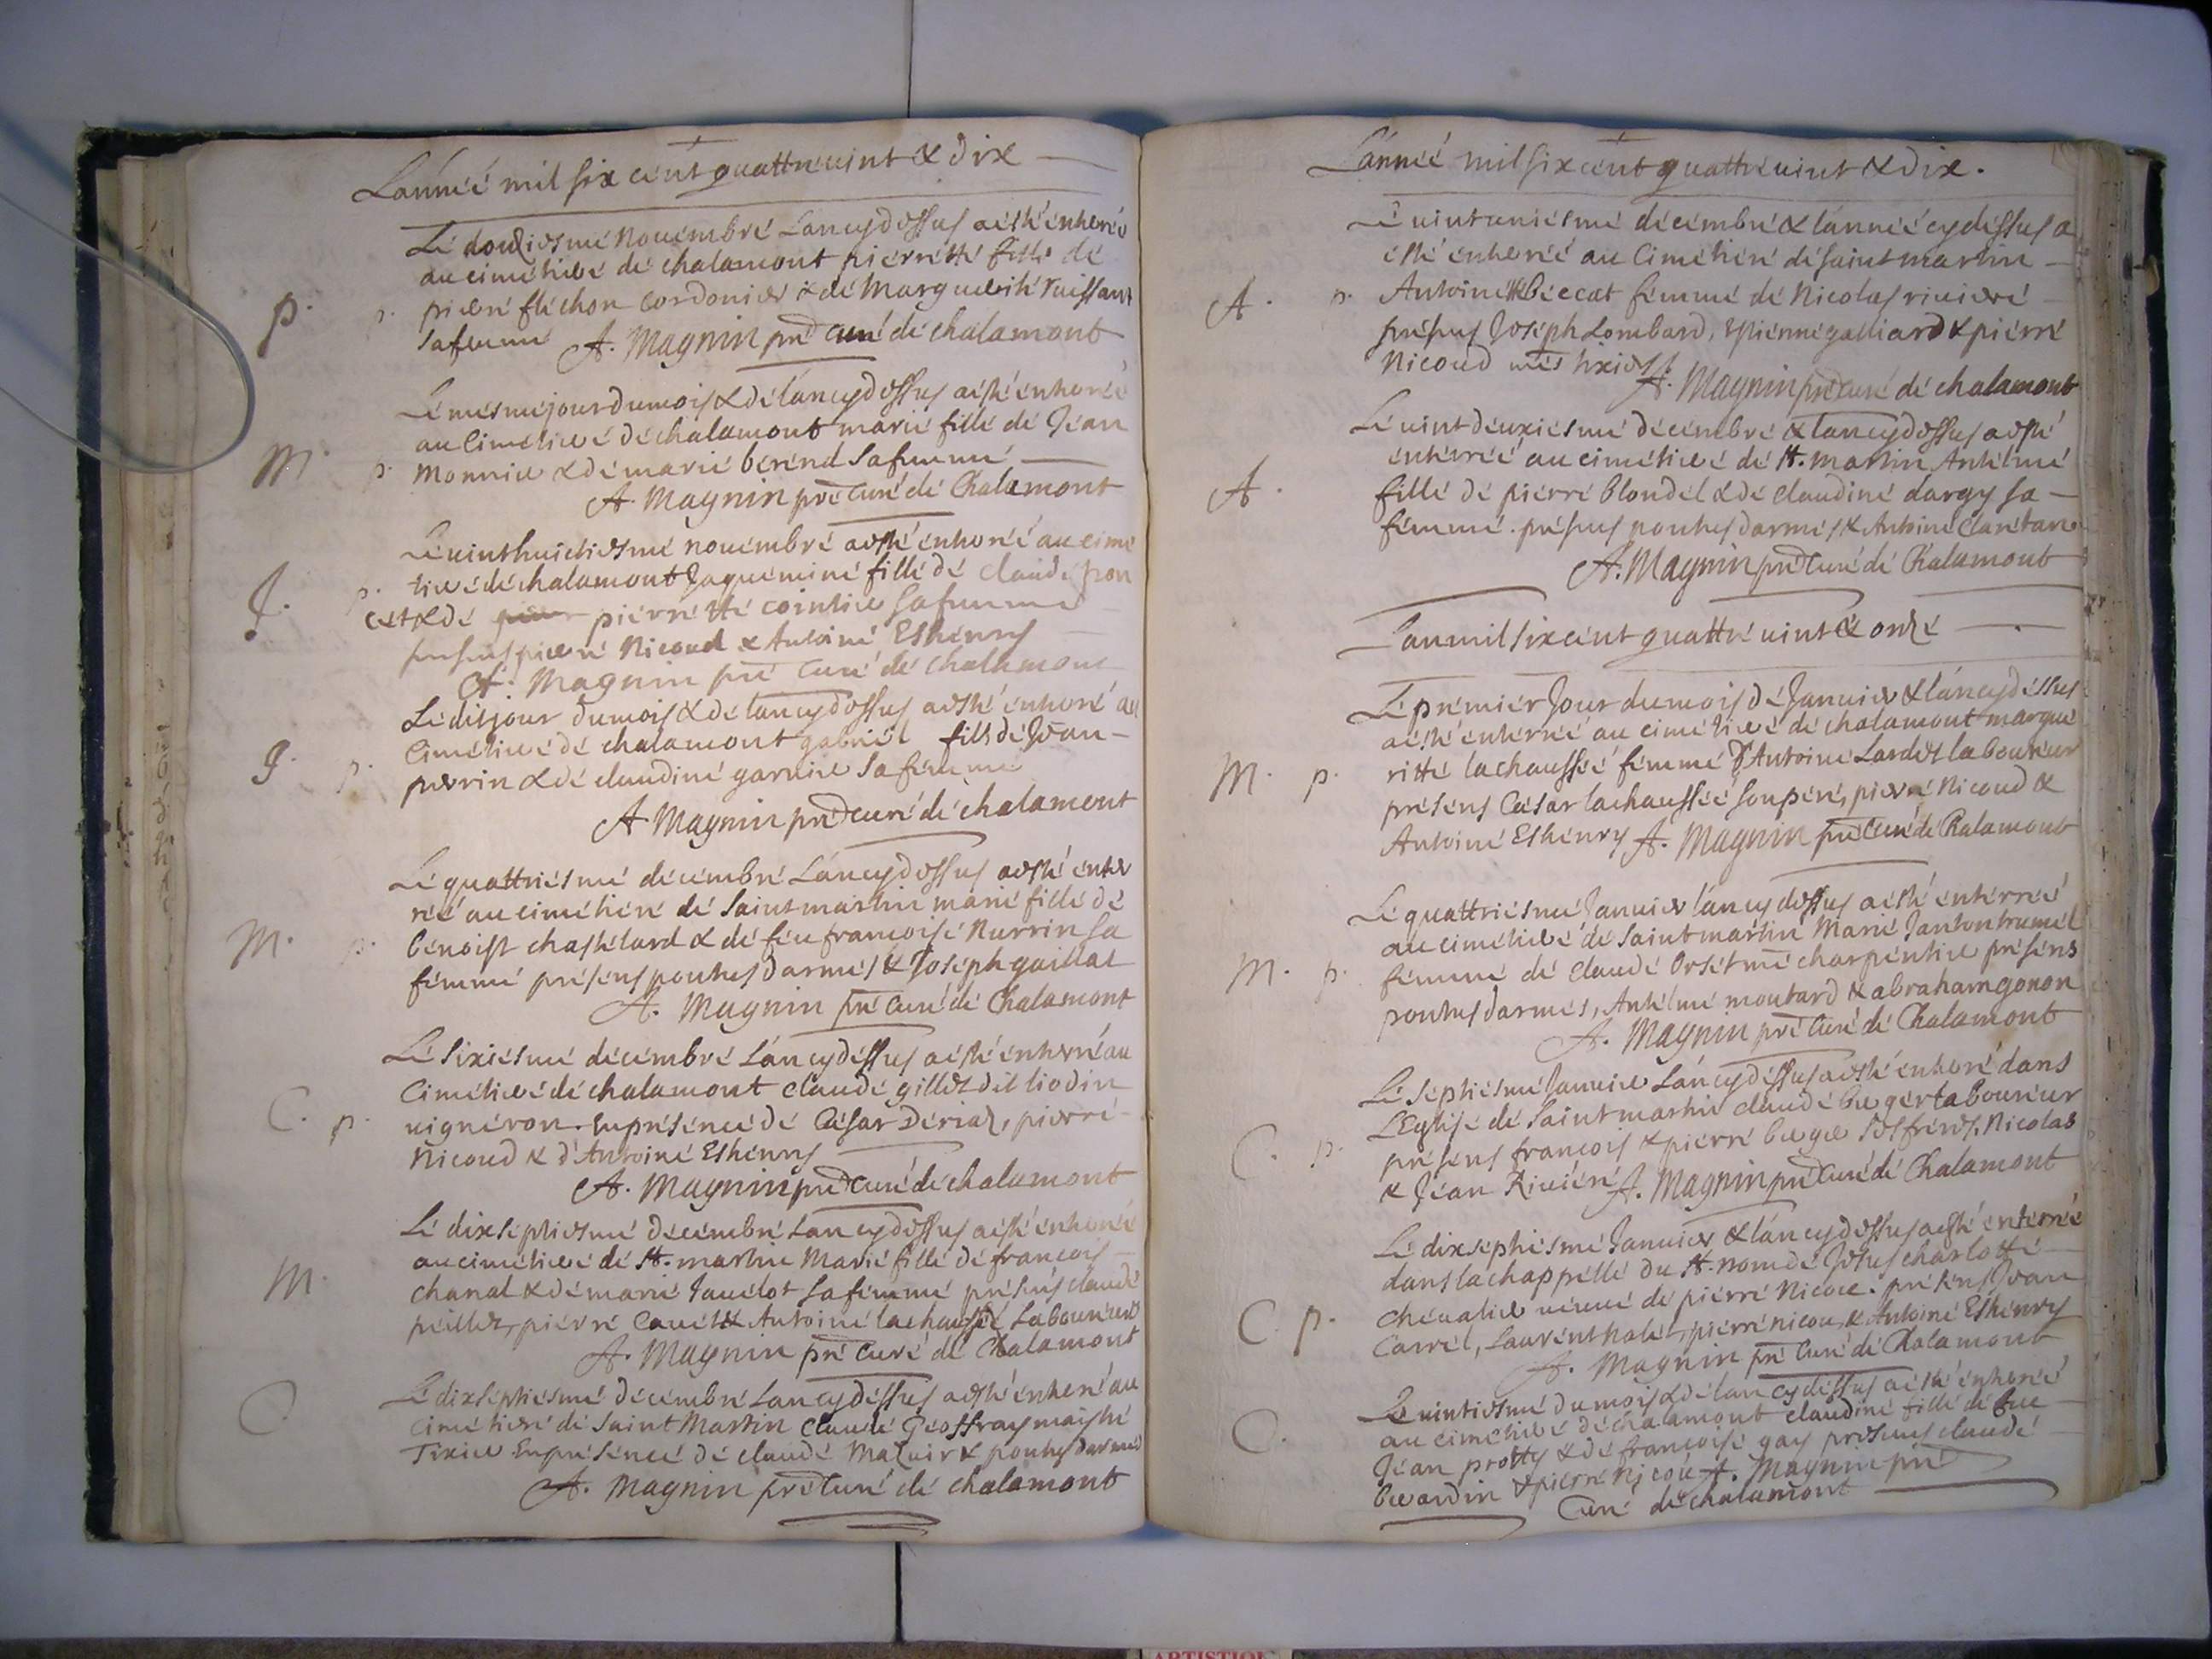 L'année mil six cent quattre uint & dix
Le douziesme Nouembre Lancy dessus a esté enterée
au cimetiere de chalamont pierrette fille de
P. p. pierre flechon Cordonier & de Marguerite ruissant
sa femme A. Magnin pre curé de chalamont
Le mesme jour du mois & de lancy dessus a esté enterée
au Cimetiere de chalamont marie fille de Jean
M. p. Monnier & de marie berend sa femme
A. Magnin pre Curé de Chalamont
Le uinthuictiesme nouembre a esté enterée au cime
tiere de chalamont Jaquemine fille de claude pon
J. p. cet & de pierrette cointier sa femme
presens pierre Nicoud & Antoine Esthenry
A. Magnin pre Curé de Chalamont
Ledit jour du mois & de lancy dessus a esté enteré au
Cimetiere de chalamont gabriel fils de Jean
g. p. perrin & de claudine garnier sa femme
A Magnin pre curé de chalamont
Le quattriesme decembre Lancy dessus a esté enter
rée au cimetiere de saint martin marie fille de
M. p. benoist chastelard & de feu francoise Nurrin sa
femme presens ponthus darmes & Joseph gaillat
A. Magnin pre Curé de Chalamont
Le sixiesme decembre Lancy dessus a esté enterré au
Cimetiere de chalamont claude gillet dit liodin
C. p. uigneron. En presence de Cesar Deriaz, pierre
Nicoud & d'Antoine Esthenry
A. Magnin pre Curé de chalamont
Le dix septiesme decembre Lancy dessus a esté enterée
au cimetiere de St. martin Marie fille de francois
M. chanal & de marie Jauelot sa femme presens claude
peiller, pierre Cauet & Antoine lachaussée Laboureurs
A. Magnin pre Curé de Chalamont
Le dixseptiesme decembre Lancy dessus a esté enteré au
C cimetiere de Saint Martin Claude Geoffray maistre
Tixier En presence de claude Mazuir & ponthus darmes
A. Magnin pre Curé de chalamont
L'année mil six cent quattre uint & dix.
Le uint uniesme decembre & lannée cy dessus a
esté enterée au Cimetiere de saint martin
A. p. Antoinette becat femme de Nicolas riuiere
presens Joseph Lombard, Estienne galliard & pierre
Nicoud mes tixiers A. Magnin pre curé de chalamont
Le uint deuxiesme decembre & lancy dessus a esté
enterrée au cimetiere de St. martin Anthelme
A. fille de pierre blondel & de claudine dargy sa
femme. presens ponthus darmes & Antoine Claretan
A. Magnin pre Curé de Chalamont
Lan mil six cent quattre uint & onze
Le premier Jour du mois de Januier & lancy dessus
a esté enterrée au cimetiere de chalamont margue
M. p. ritte lachaussée femme d'Antoine Lardet laboureur
presens Cesar lachaussée son pere, pierre Nicoud &
Antoine Esthenry A. Magnin pre Curé de Chalamont
Le quattriesme Januier lancy dessus a esté enterrée
au cimetiere de Saint martin Marie Janton trumel
M. p. femme de claude Orset me charpentier presens
ponthus darmes, Anthelme moutard & abraham gonon
A. Magnin pre Curé de Chalamont
Le septiesme Januier Lancy dessus a esté enteré dans
L'Eglise de Saint martin claude berger laboureur
C. p. presens francois & pierre berger ses freres, Nicolas
& Jean Riuiere A. Magnin pre Curé de Chalamont
Le dixseptiesme Januier & lancy dessus a esté enterrée
dans la chappelle du St. nom de Jesus charlotte
C. p. cheualier ueuue de pierre Nicoue. presens Jean
Carrel, Laurent halet, pierre nicou, & Antoine Esthenry
A. Magnin pre Curé de Chalamont
Le uintiesme du mois & de lancy dessus a esté enterée
C. au cimetiere de chalamont claudine fille de feu
Jean protty & de francoise gay presens claude
berardin & pierre Nicoue A. Magnin pre
Curé de chalamont